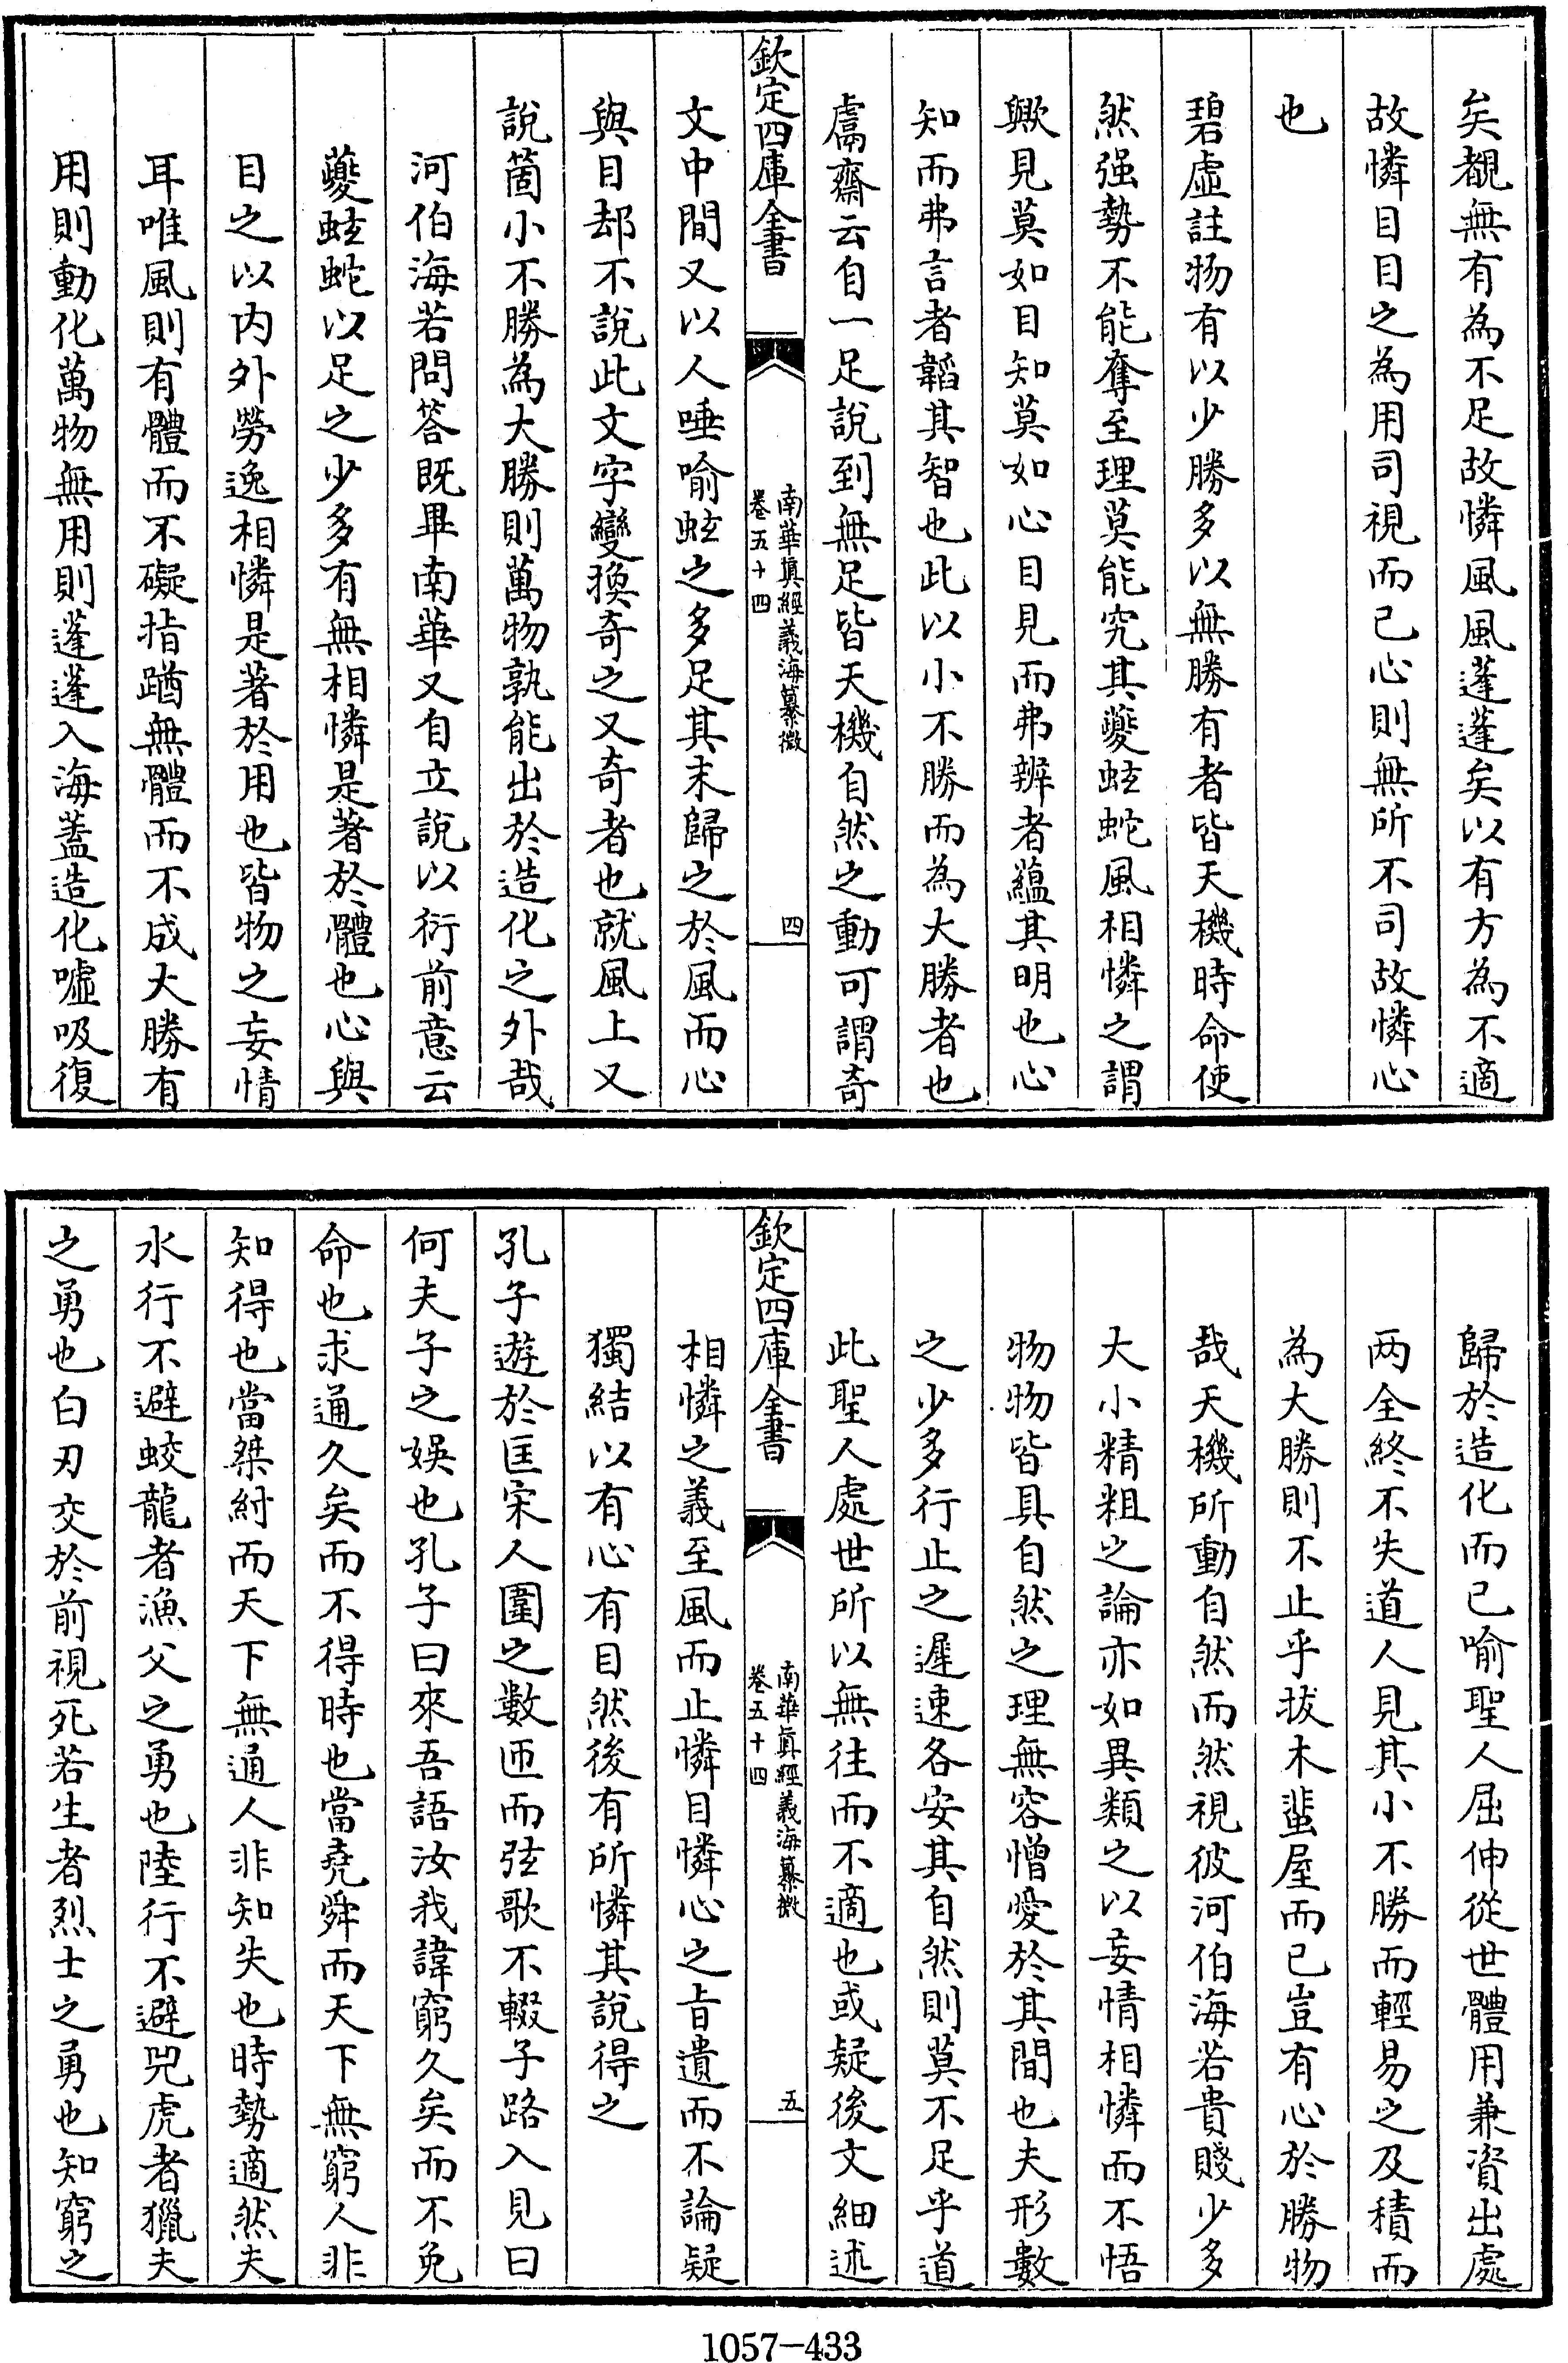 矣覩無有為不足故憐風風蓬蓬矣以有方為不適
故憐目目之為用司視而已心則無所不司故憐心
也
碧虛註物有以少勝多以無勝有者皆天機時命使
然强勢不能奪至理莫能究其夔蚿蛇風相憐之謂
歟見莫如目知莫如心目見而弗辨者蘊其明也心
知而弗言者韜其智也此以小不勝而為大勝者也
鬳齋云自一足說到無足皆天機自然之動可謂奇
欽定四庫全書
南華真經義海纂微
卷五十四
四
文中間又以人唾喻蚿之多足其末歸之於風而心
與目却不說此文字變換奇之又奇者也就風上又
說箇小不勝為大勝則萬物孰能出於造化之外哉
河伯海若問答既畢南華又自立說以衍前意云
夔蚿蛇以足之少多有無相憐是著於體也心與
目之以内外勞逸相憐是著於用也皆物之妄情
耳唯風則有體而不礙指蹈無體而不成大勝有
用則動化萬物無用則蓬蓬入海蓋造化噓吸復
歸於造化而已喻聖人屈伸從世體用兼資出處
两全終不失道人見其小不勝而輕易之及積而
為大勝則不止乎拔木蜚屋而已豈有心於勝物
哉天機所動自然而然視彼河伯海若貴賤少多
大小精粗之論亦如異類之以妄情相憐而不悟
物物皆具自然之理無容憎愛於其間也夫形數
之少多行止之遲速各安其自然則莫不足乎道
此聖人處世所以無往而不適也或疑後文細述
欽定四庫全書
南華真經義海纂微
卷五十四
五
相憐之義至風而止憐目憐心之旨遺而不論疑
獨結以有心有目然後有所憐其說得之
孔子遊於匡宋人圍之數匝而弦歌不輟子路入見曰
何夫子之娛也孔子曰來吾語汝我諱窮久矣而不免
命也求通久矣而不得時也當堯舜而天下無窮人非
知得也當桀紂而天下無通人非知失也時勢適然夫
水行不避蛟龍者漁父之勇也陸行不避兕虎者獵夫
之勇也白刃交於前視死若生者烈士之勇也知窮之
1057-433